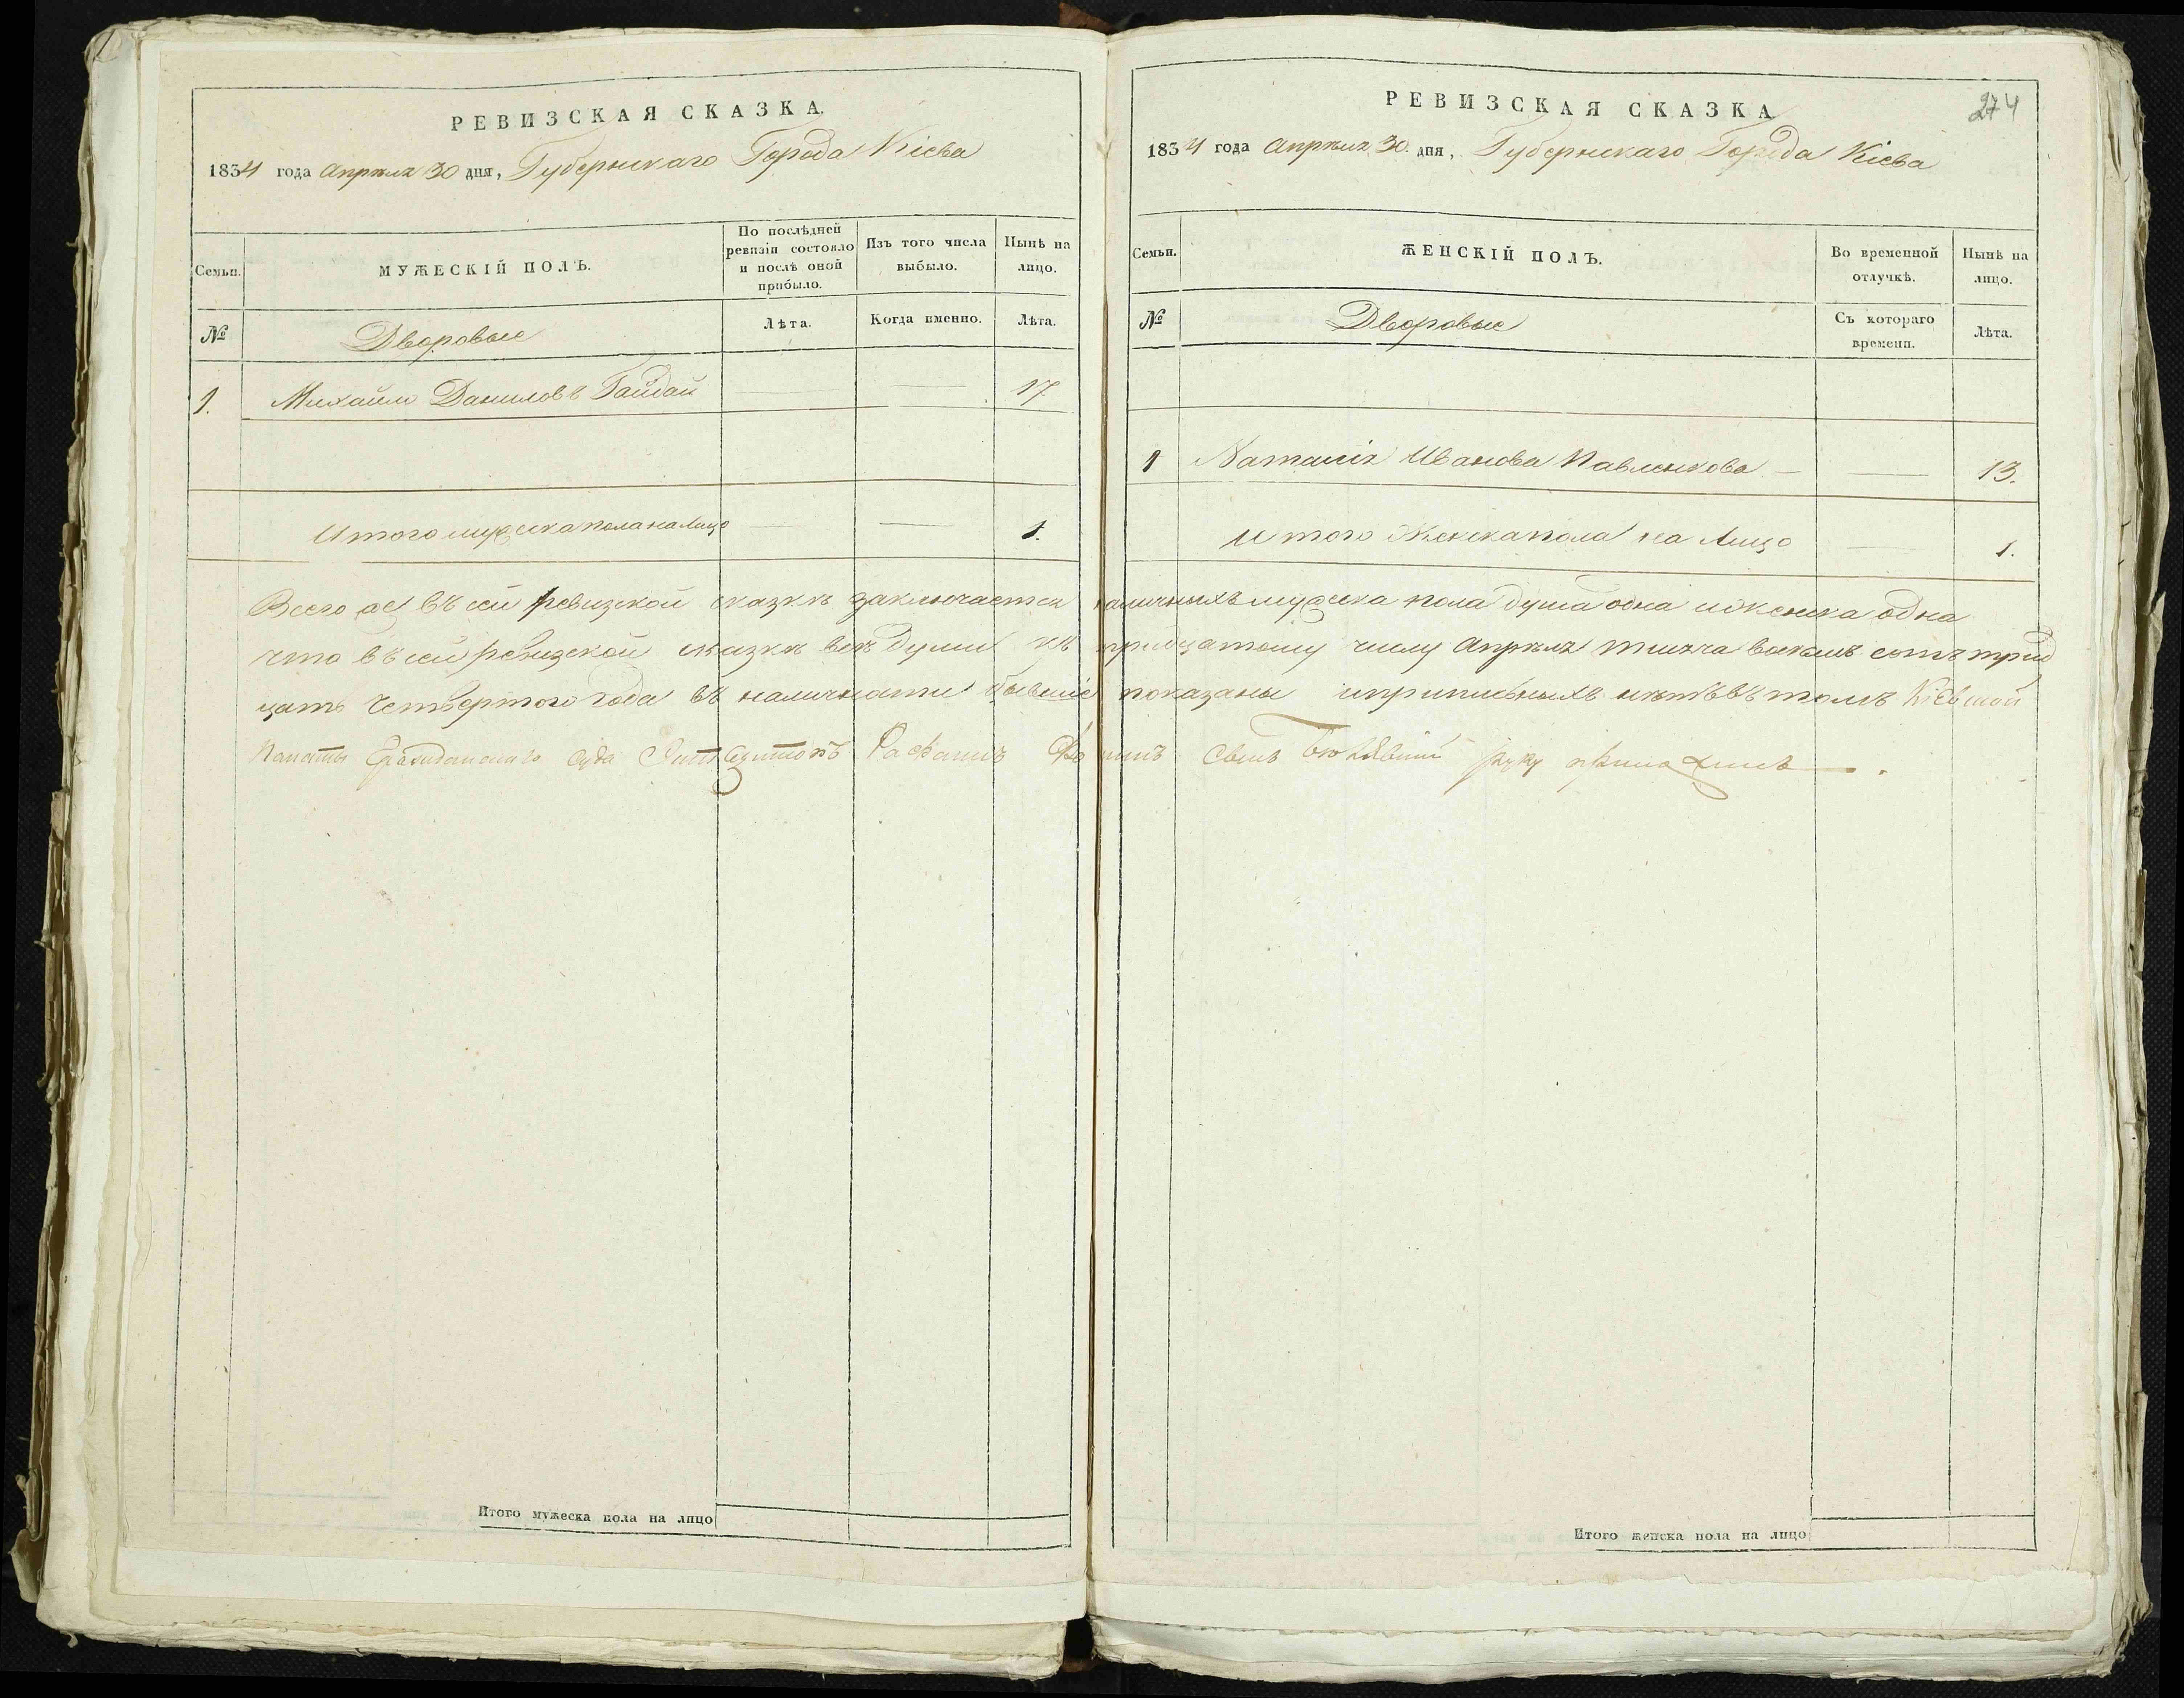 РЕВИЗСКАЯ СКАЗКА.
1834 года Апрѣля 30 дня, Губернскаго Города Кіева
Семьи.
МУЖЕСКІЙ ПОЛЪ.
По послѣдней ревизіи состояло и послѣ оной прибыло.
Изъ того числа выбыло.
Нынѣ на лицо.
№
Дворовые
Лѣта.
Когда именно.
Лѣта.
1. Михайло Даниловъ Гайдай 17
Итого мужеска пола на лицо 1.
Итого мужеска пола на лицо
РЕВИЗСКАЯ СКАЗКА
274
1834 года Апрѣля 30 дня, Губернскаго Города Кіева
Семьи.
ЖЕНСКІЙ ПОЛЪ.
Во временной отлучкѣ.
Нынѣ на лицо.
№
Дворовые
Съ котораго времени.
Лѣта.
1 Наталія Иванова Павленкова 13.
Итого Женска пола на Лицо 1.
Всего въ сей ревизской сказкѣ заключается наличныхъ мужеска пола душа одна и женска одна
что въ сей ревизской сказкѣ всѣ души къ тридцатому числу Апрѣля тысяча восемь сотъ трид
цать Четвертого Года въ наличности бывшіе показаны и прописныхъ нѣтъ въ томъ Кіевской
Палаты Гражданскаго Суда сынъ руку приложилъ
Итого женска пола на лицо